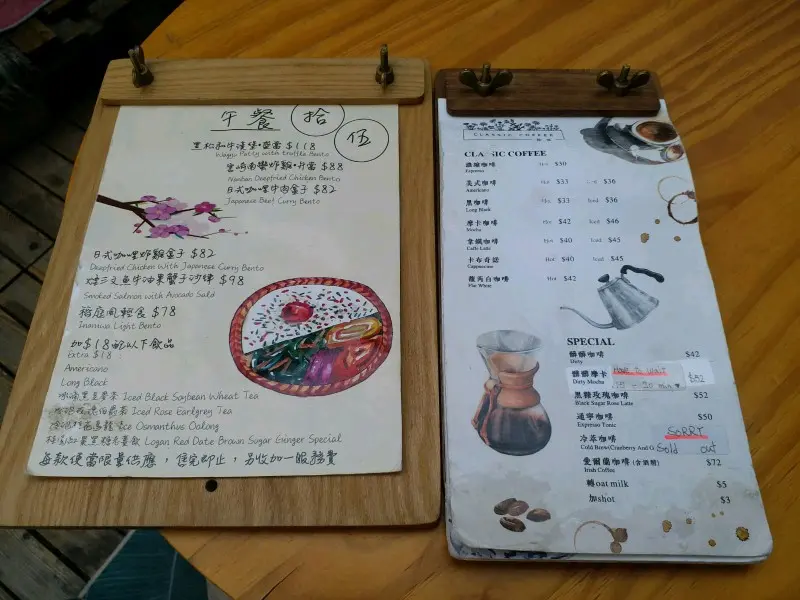 午餐
拾
伍
黑松和牛漢堡•便當 $118
Wagyu Patty with truffle Bento
宮崎南蠻炸雞•弁當 $88
Nanban Deepfried Chicken Bento
日式咖喱牛肉盒子 $82
Japanese Beef Curry Bento
日式咖喱炸雞盒子 $82
Deepfried Chicken With Japanese Curry Bento
煙三文魚牛油果蟹子沙律 $98
Smoked Salmon with Avocado Salad
稻庭風輕食 $78
Inaniwa Light Bento
加$18配以下飲品
Extra $18
Americano
Long Black
Iced Black Soybean Wheat Tea
Iced Rose Earlgrey Tea
Ice Osmanthus Oolong
Logan Red Date Brown Sugar Ginger Special
每款便當限量供應，售完即止，另收加一服務費
CLASSIC COFFEE
CLASSIC COFFEE
濃縮咖啡 Hot $30
Espresso
美式咖啡 Hot $33 Iced $36
Americano
黑咖啡 Hot $33 Iced $36
Long Black
摩卡咖啡 Hot $42 Iced $46
Mocha
拿鐵咖啡 Hot $40 Iced $45
Caffe Latte
卡布奇諾 Hot $40 Iced $45
Cappuccino
馥芮白咖啡 Hot $42
Flat White
SPECIAL
髒髒咖啡 $42
Dirty
髒髒摩卡 Have to wait $52
Dirty Mocha 15 - 20 min ♥
黑糖玫瑰咖啡 $52
Black Sugar Rose Latte
通寧咖啡 $50
Espresso Tonic
冷萃咖啡 SORRY
Cold Brew(Cranberry And G Sold out
愛爾蘭咖啡 (含酒精) $72
Irish Coffee
轉oat milk $5
加shot $3